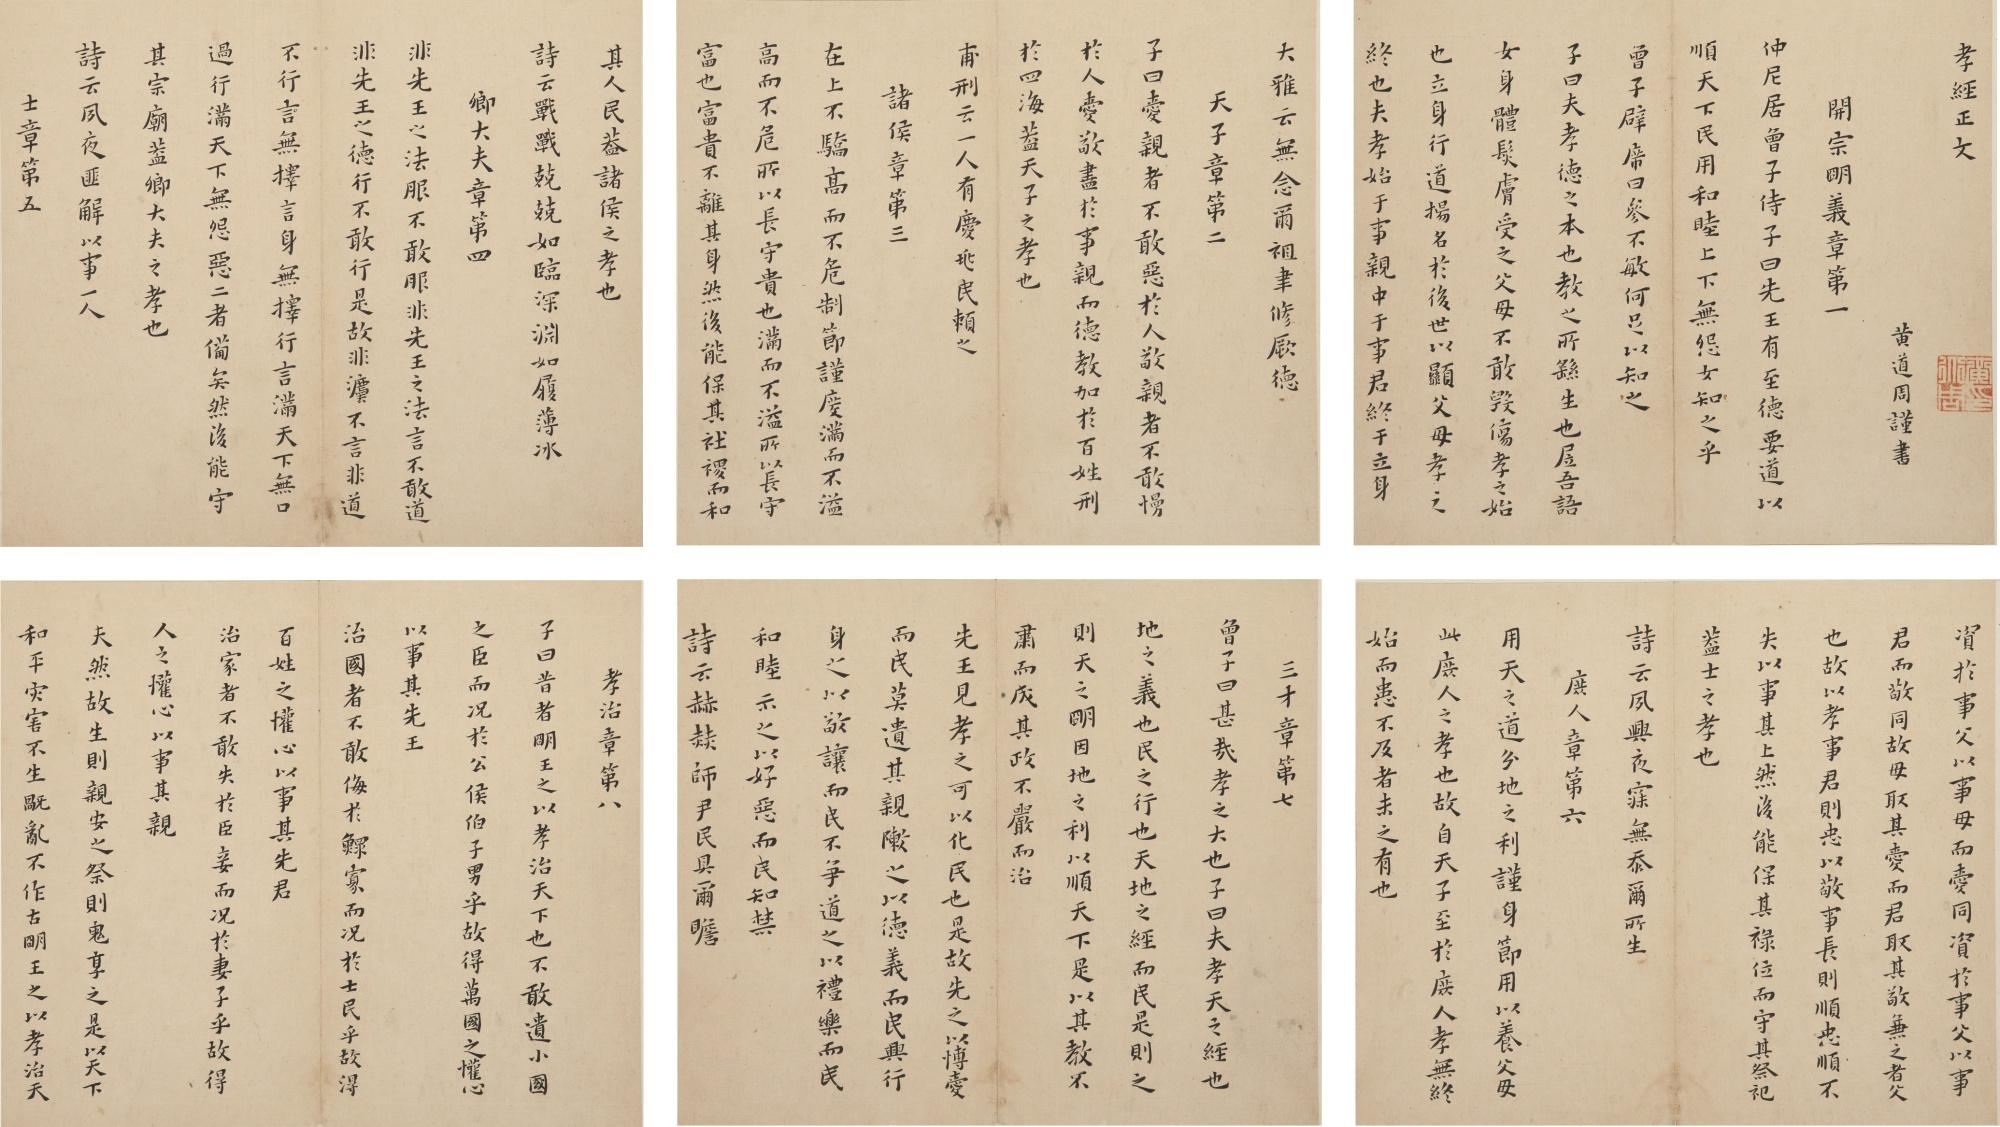 孝經正文
黄道周謹書
開宗明義章第一
仲尼居曾子侍子曰先王有至德要道以
順天下民用和睦上下無怨女知之乎
曾子辟席曰參不敏何足以知之
子曰夫孝德之本也教之所繇生也居吾語
女身體髮膚受之父母不敢毀傷孝之始
也立身行道揚名於後世以顯父母孝之
終也夫孝始于事親中于事君終于立身
大雅云無念爾祖聿修厥德
天子章第二
子曰愛親者不敢惡於人敬親者不敢慢
於人愛敬盡於事親而德教加於百姓刑
於四海蓋天子之孝也
甫刑云一人有慶兆民賴之
諸侯章第三
在上不驕高而不危制節謹度滿而不溢
高而不危所以長守貴也滿而不溢所以長守
富也富貴不離其身然後能保其社稷而和
其人民蓋諸侯之孝也
詩云戰戰兢兢如臨深淵如履薄冰
卿大夫章第四
非先王之法服不敢服非先王之法言不敢道
非先王之德行不敢行是故非灋不言非道
不行言無擇言身無擇行言滿天下無口
過行滿天下無怨惡二者備矣然後能守
其宗廟蓋卿大夫之孝也
詩云夙夜匪解以事一人
士章第五
資於事父以事母而愛同資於事父以事
君而敬同故母取其愛而君取其敬兼之者父
也故以孝事君則忠以敬事長則順忠順不
失以事其上然後能保其祿位而守其祭祀
蓋士之孝也
詩云夙興夜寐無忝爾所生
庶人章第六
用天之道分地之利謹身節用以養父母
此庶人之孝也故自天子至於庶人孝無終
始而患不及者未之有也
三才章第七
曾子曰甚哉孝之大也子曰夫孝天之經也
地之義也民之行也天地之經而民是則之
則天之明因地之利以順天下是以其教不
肅而成其政不嚴而治
先王見孝之可以化民也是故先之以博愛
而民莫遺其親陳之以德義而民興行
身之以敬讓而民不爭道之以禮樂而民
和睦示之以好惡而民知禁
詩云赫赫師尹民具爾瞻
孝治章第八
子曰昔者明王之以孝治天下也不敢遺小國
之臣而况於公侯伯子男乎故得萬國之懽心
以事其先王
治國者不敢侮於鰥寡而况於士民乎故得
百姓之懽心以事其先君
治家者不敢失於臣妾而况於妻子乎故得
人之懽心以事其親
夫然故生則親安之祭則鬼享之是以天下
和平灾害不生禍亂不作古明王之以孝治天